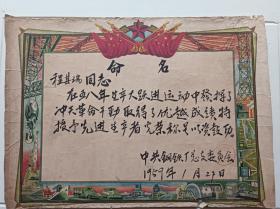 命名
程其瑞同志
在五八年生产大跃进运动中发挥了
冲天革命干劲取得了优越成绩特
授予先进生产者光荣称号以资鼓励
中共钢铁厂党委员会
1959年1月23日